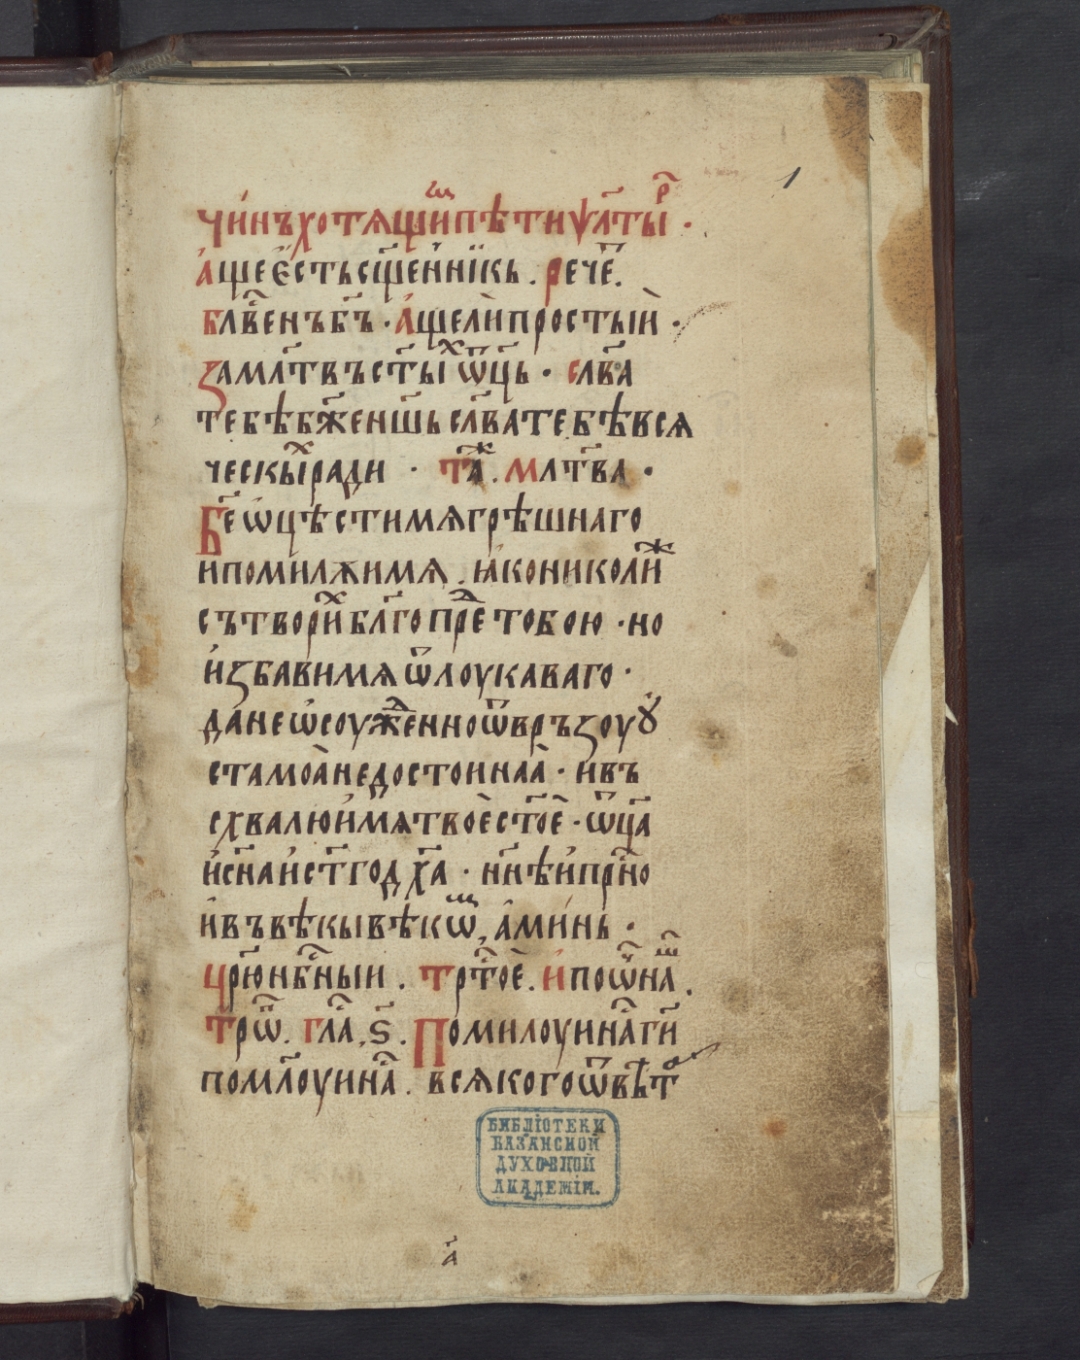 1
чи́нъхотѧщи̑мпѣтиѱа҃лты̑р ·
а́щеѐстьсщ҃е́нни́кь . рече҃ .
бл҃ве́нъбг҃ъ · а́щелѝпростыѝ ·
ꙁамл҃твъст҃ы́хѿц҃ь · сла́ва
тебѣбж҃енш҃ьсла́ватебѣвсѧ
ческы́хради · та́ж . мл҃тва ·
Бж҃еѡ҆цѣстимѧгрѣшнаго
ипомилꙋ́имѧ . ꙗ́кониколи́ж
сътвори́хбл҃гопре́дтобою · но
и́ꙁбавимѧѿлоукаваго ·
да́неѡ҆соуж҃е́нноѿвръꙁоуꙋ
стамоа̀недостоинаа̀ · ивъ
схвалюи́мѧтвоѐст҃оѐ · ѿц҃а
и́сн҃аи́ст҃годх҃а · нн҃ѣи́прⷭ҇но
и́въвѣкывѣкѡ́м , а́ми́нь ·
цр҃юнбⷭ҇ныи . трⷭ҇тоѐ . и́поѿ҃чена́ш .
тро́п . гла́ , ѕ҃ . Помилоуина́сгй
помл҃оуина́с . всѧкогоѿвѣ́то
БИБЛІОТЕКИ
КАЗАНСКОЙ
ДУХОВНОЙ
АКАДЕМІИ.
а҃